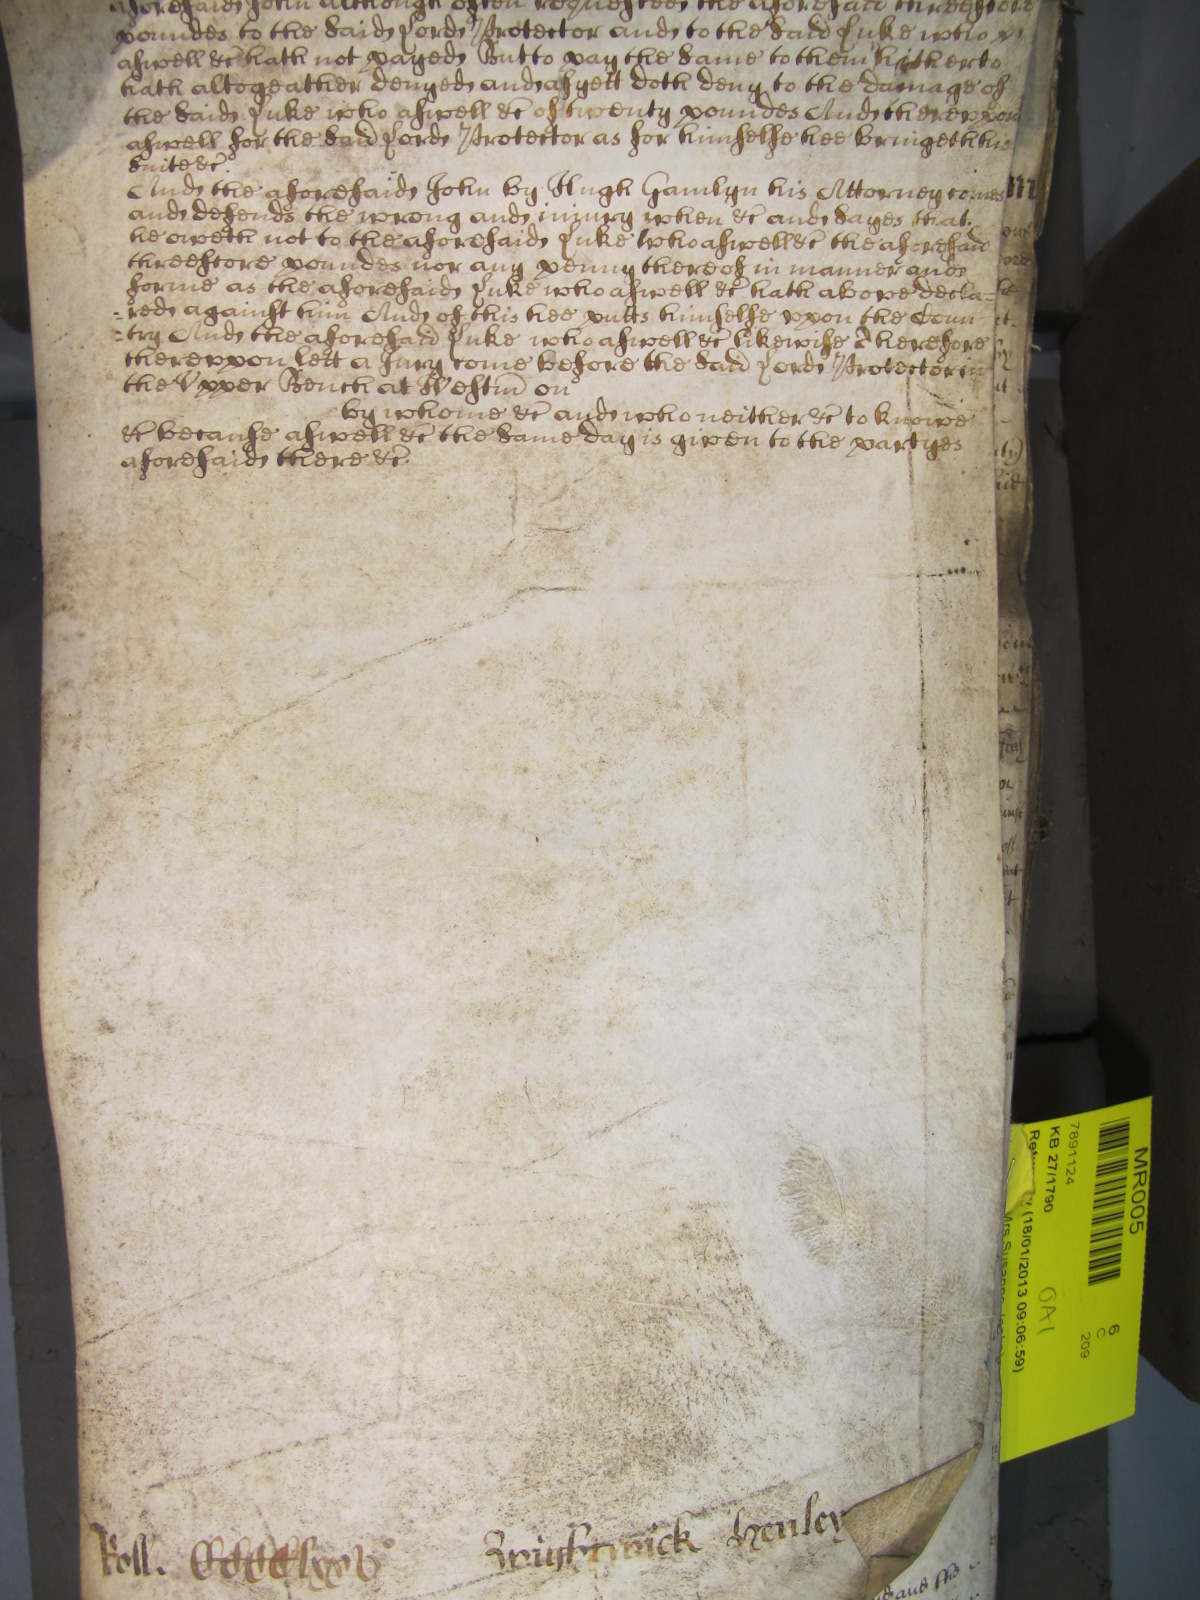 aforesaid John although often requested the aforesaid threescore
poundes to the said Lord Protector and to the said Luke who
aswell &c hath not payed But to pay the same to them hitherto
hath altogeather denyed and as yett doth deny to the damage of
the said Luke who aswell &c of twenty poundes And thereuppon
aswell for the said Lord Protector as for himselfe hee bringeth his
suite &c.
And the aforesaid John by Hugh Hamlyn his Attorney comes
and defends the wrong and iniury when &c and sayes that
he oweth not to the aforesaid Luke who aswell &c the aforesaid
threescore poundes nor any penny thereof in manner and
forme as the aforesaid Luke who aswell &c hath above decla=
=red against him And of this hee putts himselfe uppon the Coun=
=try And the aforesaid Luke who aswell &c likewise Therefore
thereuppon lett a Jury come before the said Lord Protector in
the Upper Bench at Westm on
by whome &c and who neither &c to knowe
&c because aswell &c the same day is given to the partyes
aforesaid there &c.
Roll.
Wightwick Henley
MR005
7891124
KB 27/1790
(18/01/2013 09:06:59)
6
C
209